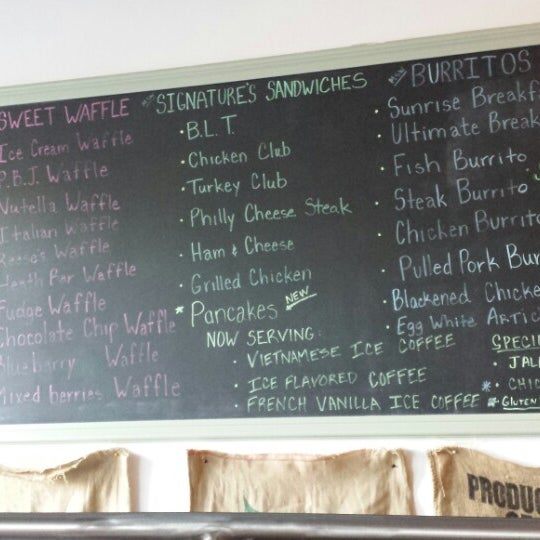 SWEET WAFFLE
Ice Cream Waffle
P.B.J. Waffle
Nutella Waffle
Italian Waffle
Reeses Waffle
Heath Bar Waffle
Fudge Waffle
Chocolate Chip Waffle
Blueberry Waffle
Mixed berries Waffle
SIGNATURE'S SANDWICHES
• B.L.T.
• Chicken Club
• Turkey Club
• Philly Cheese Steak
• Ham & Cheese
• Grilled Chicken
* Pancakes NEW
NOW SERVING:
• VIETNAMESE ICE COFFEE
• ICE FLAVORED COFFEE
• FRENCH VANILLA ICE COFFEE
BURRITOS
• Sunrise Breakfa
• Ultimate Break
• Fish Burrito
• Steak Burrito
• Chicken Burrito
• Pulled Pork Bur
• Blackened Chicke
• Egg White Artic
SPECI
• JAL
* • CHIC
* GLUTEN
PRODUC